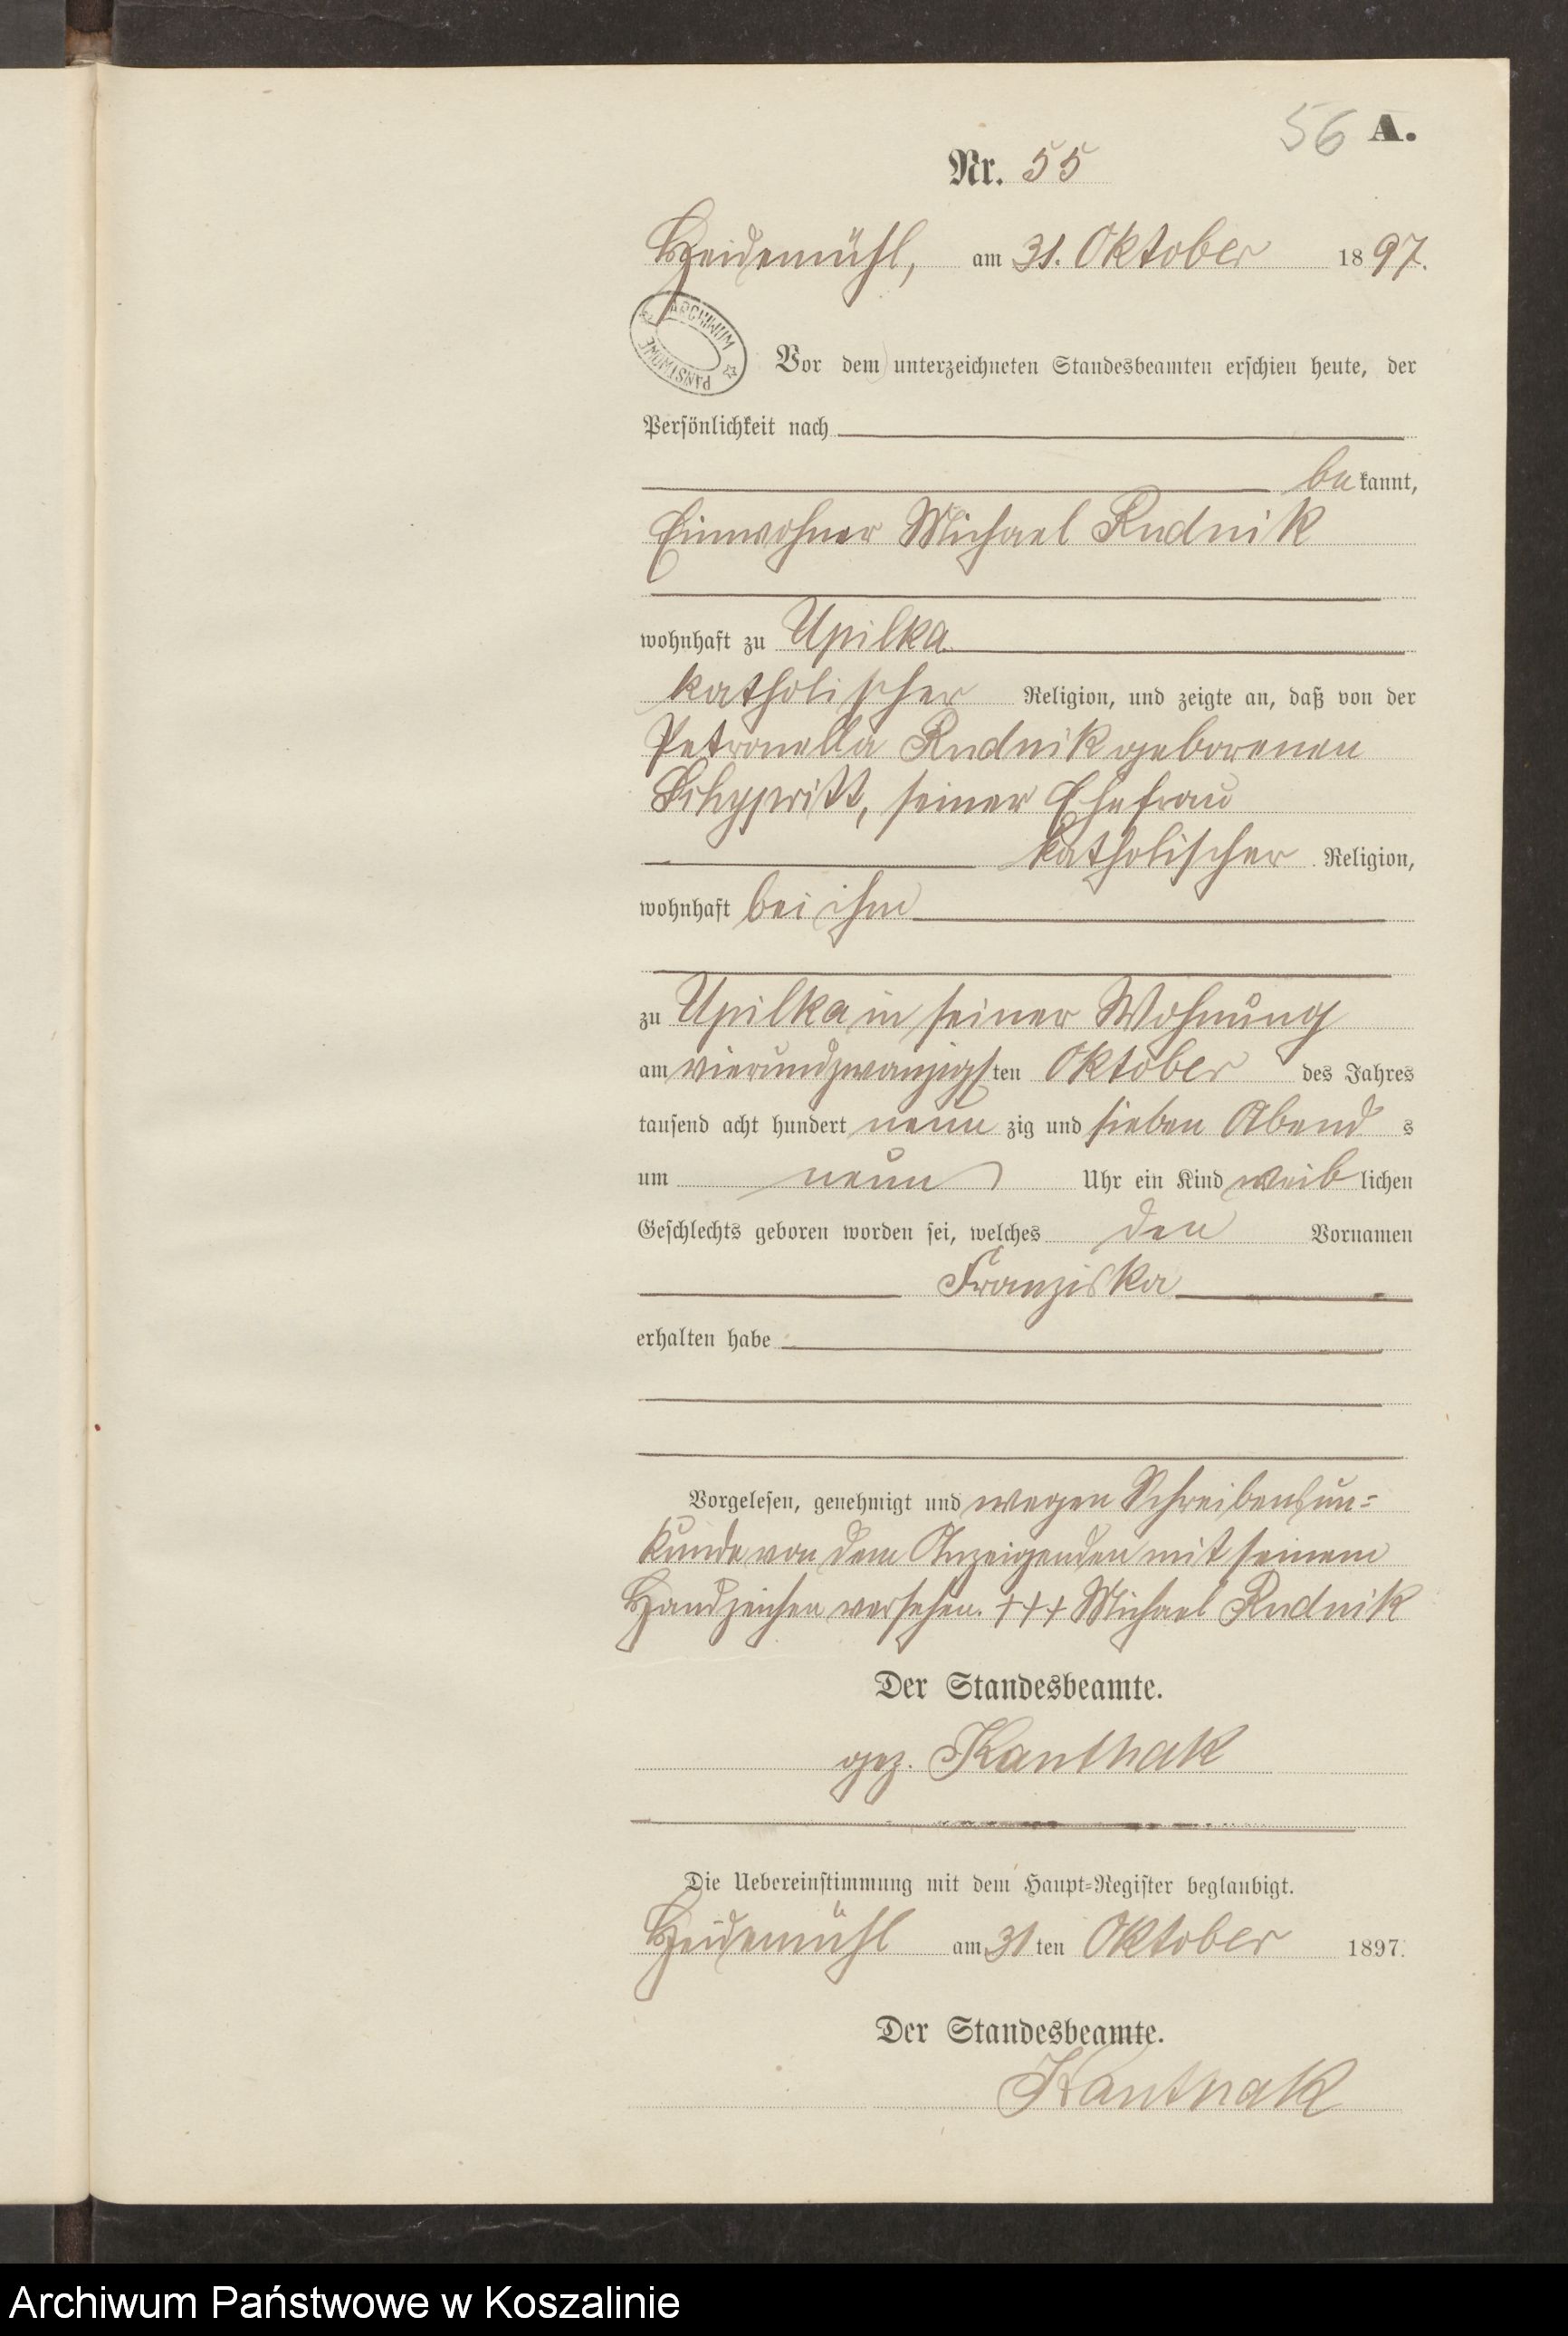 56 A.
Nr. 55
Heidemühl, am 31. Oktober 1897.
ARCHIWUM PAŃSTWOWE
Vor dem unterzeichneten Standesbeamten erschien heute, der
Persönlichkeit nach
bekannt,
Einwohner Michael Rudnik
wohnhaft zu Upilka
katholischer Religion, und zeigte an, daß von der
Petronella Rudnik geborenen
seiner Ehefrau
katholischer Religion,
wohnhaft bei ihm
zu Upilka in seiner Wohnung
am vierundzwanzigsten Oktober des Jahres
tausend acht hundert neunzig und sieben Abends
um neun Uhr ein Kind weiblichen
Geschlechts geboren worden sei, welches den Vornamen
Franziska
erhalten habe
Vorgelesen, genehmigt und wegen Schreibensun-
kunde von dem Anzeigenden mit seinem
Handzeichen versehen. +++ Michael Rudnik
Der Standesbeamte.
gez. Kanthak
Die Uebereinstimmung mit dem Haupt-Register beglaubigt.
Heidemühl am 31ten Oktober 1897.
Der Standesbeamte.
Kanthak
Archiwum Państwowe w Koszalinie